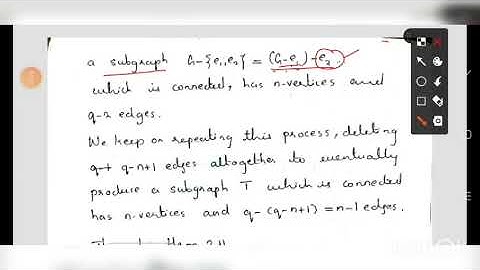 a subgraph G-{e₁,e₂} = (G-e₁)-e₂.
which is connected, has n-vertices and
q-2 edges.
We keep on repeating this process, deleting
q-n+1 edges altogether to eventually
produce a subgraph T which is connected
has n-vertices and q-(q-n+1) = n-1 edges.